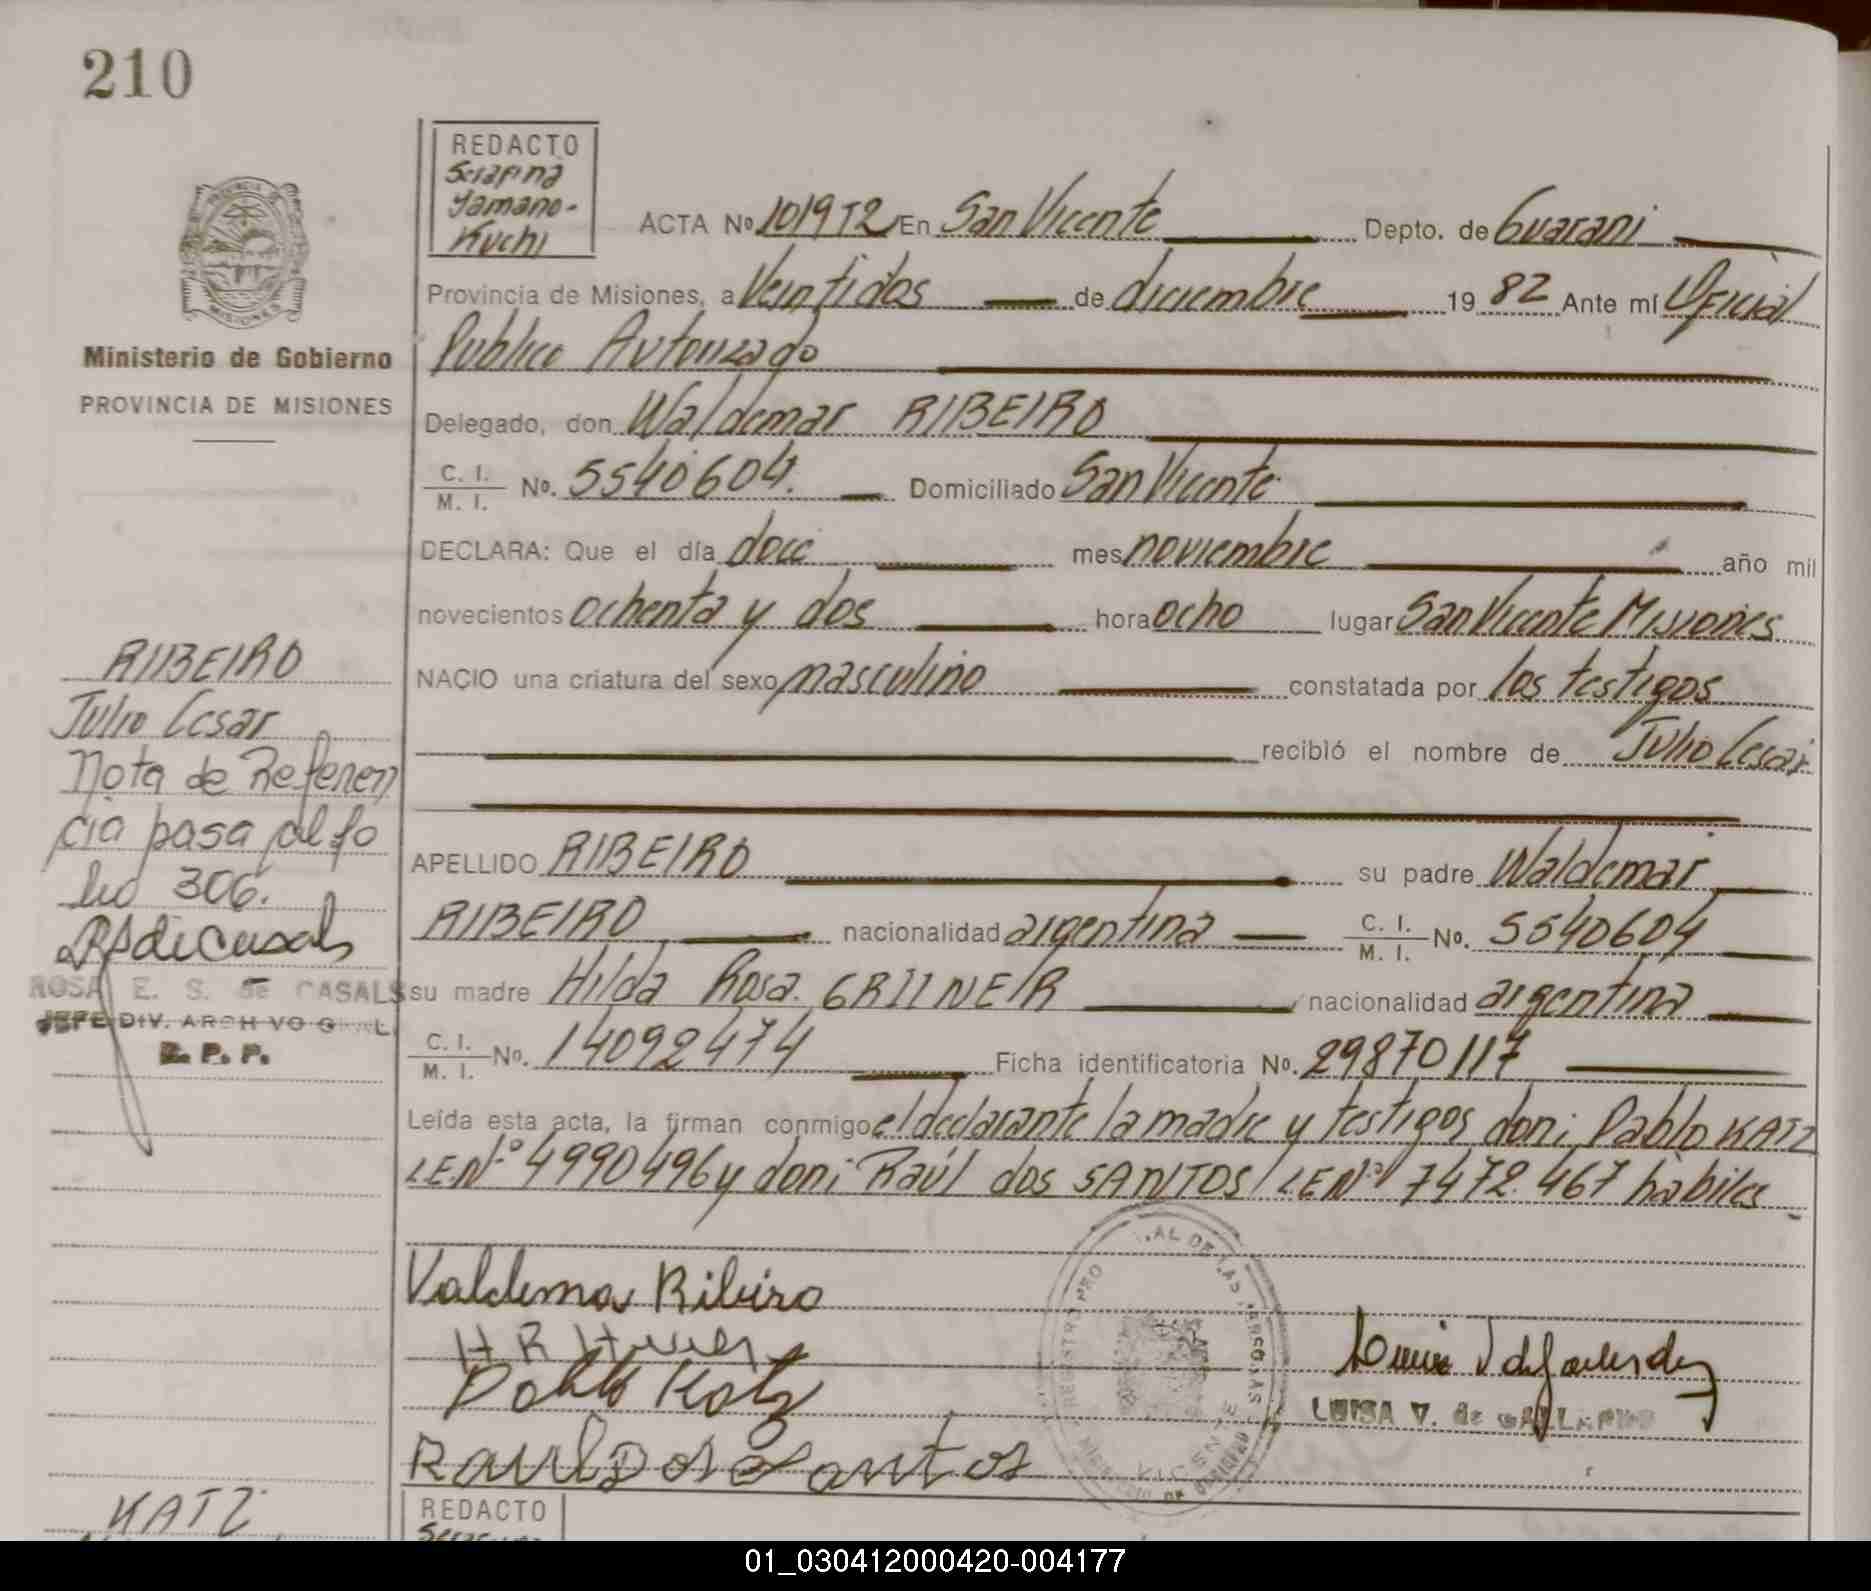 210
REDACTO
Serafina
Yamano-
Kuchi
PROVINCIA DE
MISIONES
Ministerio de Gobierno
PROVINCIA DE MISIONES
ACTA No 1019T2 En San Vicente Depto. de Guarani
Provincia de Misiones, a Veintidos de diciembre 19 82 Ante mí Oficial
Publico Autorizado
Delegado, don Waldemar RIBEIRO
C. I.
M. I. No. 5540604. Domiciliado San Vicente
DECLARA: Que el día doce mes noviembre año mil
novecientos ochenta y dos hora ocho lugar San Vicente Misiones
NACIO una criatura del sexo masculino constatada por los testigos
recibió el nombre de Julio Cesar
APELLIDO RIBEIRO su padre Waldemar
RIBEIRO nacionalidad argentina C. I.
M. I. No. 5540604
su madre Hilda Rosa nacionalidad argentina
C. I.
M. I. No. 14092474 Ficha identificatoria No. 29870117
Leída esta acta, la firman conmigo el declarante la madre y testigos don: Pablo KATZ
LE.Nº 4990496 y don: Raúl dos SANTOS LE Nº 7472.467 hábiles
RIBEIRO
Julio Cesar
Nota de Referen
cia pasa al fo
lio 306.
ROSA E. S. de CASALS
JEFE DIV. ARCHIVO GRAL.
R. P. P.
Valdema Ribeiro
H R
Pablo Katz
Raul Dos Santos
LUISA V. de GALLARDO
VICENTE
KATZ
REDACTO
01_030412000420-004177